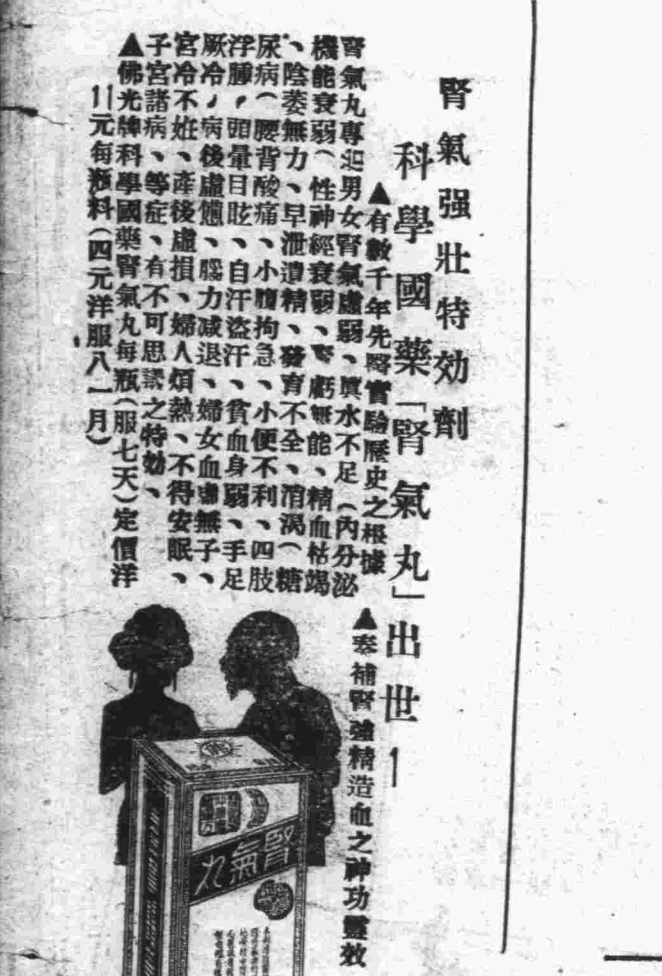 腎氣强壯特効劑
科學國藥「腎氣丸」出世！
▲有數千年先賢實驗歷史之根據
▲奏補腎強精造血之神功靈效
腎氣丸專治男女腎氣虛弱、眞水不足（內分泌
機能衰弱（性神經衰弱、腎虧無能、精血枯竭
、陰萎無力、早泄遺精、發育不全、消渴（糖
尿病（腰背酸痛、小腹拘急、小便不利、四肢
浮腫，頭暈目眩、自汗盜汗、貧血身弱、手足
厥冷，病後虛憊、腦力减退、婦女血虛無子、
宮冷不姙、產後虛損、婦人煩熱、不得安眠、
子宮諸病、等症、有不可思議之特効、
▲佛光牌科學國藥腎氣丸每瓶（服七天）定價洋
一元每瓶料（四元洋服八一月）
腎氣丸